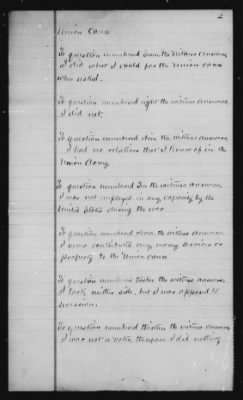 2
Union Cause
To question numbered seven the witness answers
I did what I could for the Union cause
when asked.
To question numbered eight the witness answers
I did not.
To question numbered nine the witness answers
I had no relatives that I know of in the
Union Army.
To question numbered Ten the witness answers
I was not employed in any capacity by the
United States during the war.
To question numbered eleven the witness answers
I never contributed any money services or
property to the Union cause.
To question numbered twelve the witness answers
I took neither side, but I was opposed to
secession.
To question numbered thirteen the witness answers
I was not a voter therefore I did nothing